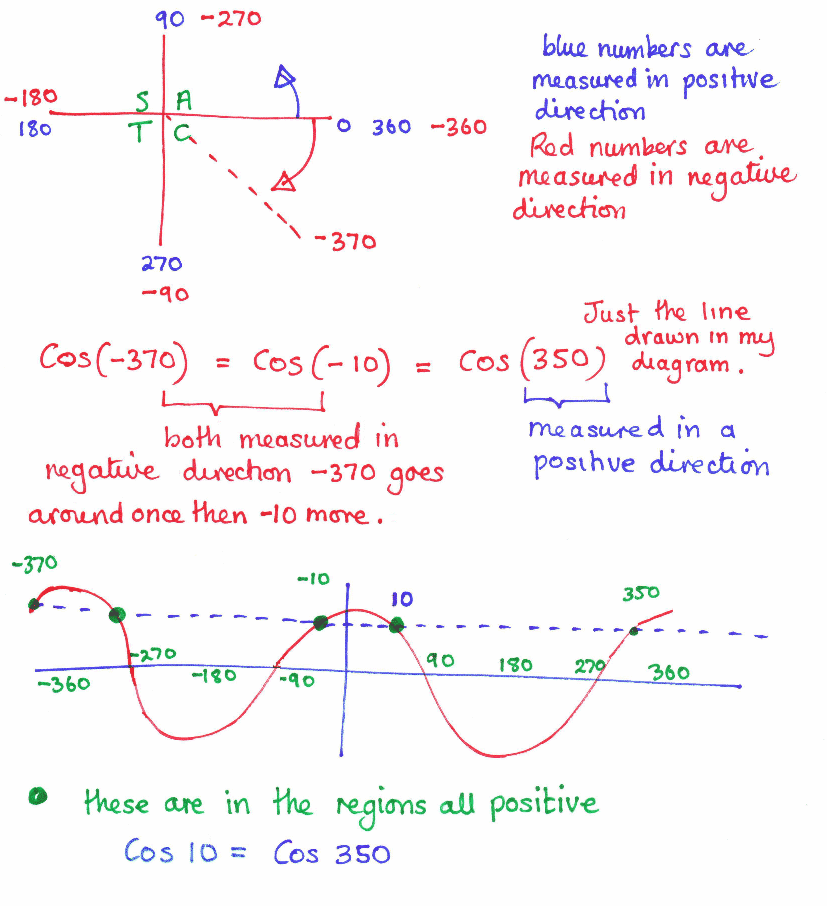 90 -270
-180
180
S A
T C
0 360 -360
-370
270
-90
blue numbers are
measured in positive
direction
Red numbers are
measured in negative
direction
Just the line
drawn in my
diagram.
Cos(-370) = Cos(-10) = Cos(350)
both measured in
negative direction -370 goes
around once then -10 more.
measured in a
positive direction
-370
-10
10
350
-360
-270
-180
-90
90
180
270
360
these are in the regions all positive
Cos 10 = Cos 350